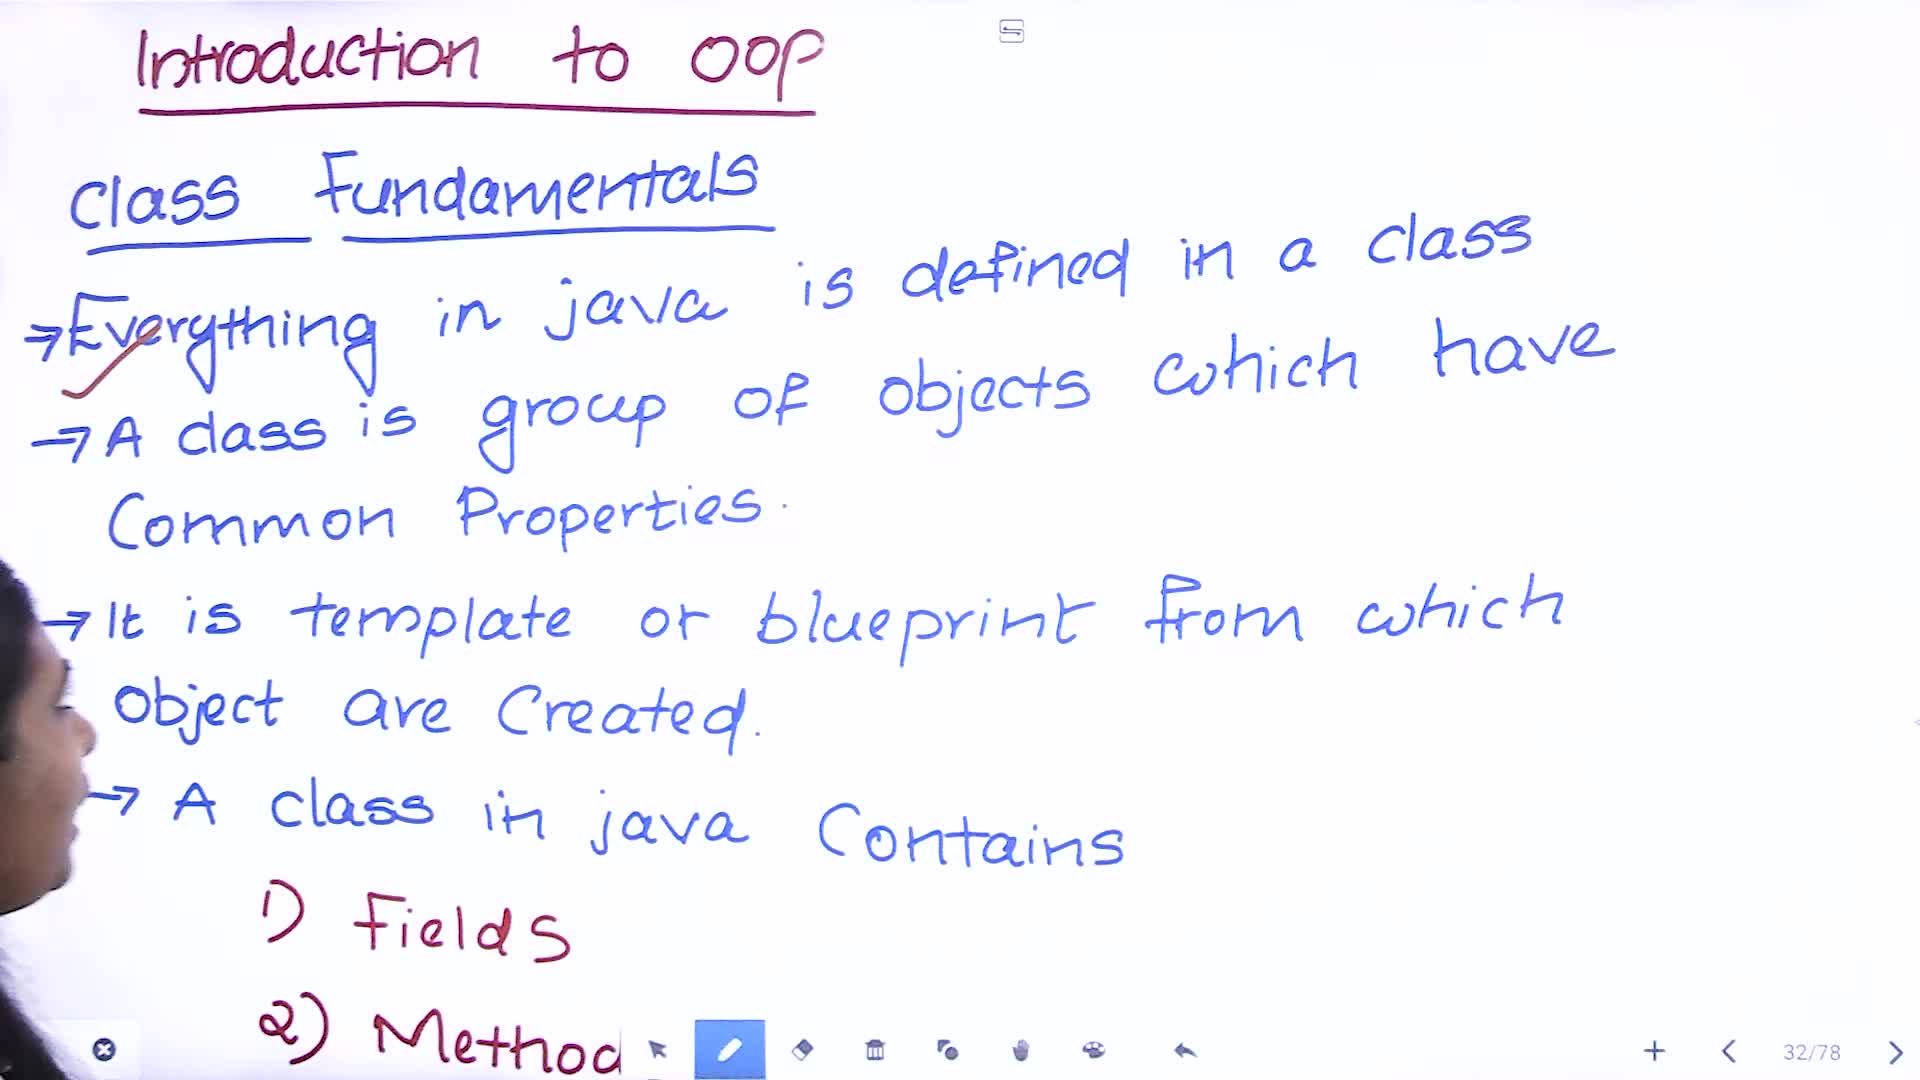 Introduction to OOP
Class Fundamentals
→Everything in java is defined in a class
→ A class is group of objects which have
Common Properties.
→ It is template or blueprint from which
Object are Created.
→ A class in java Contains
1) Fields
2) Method
32/78